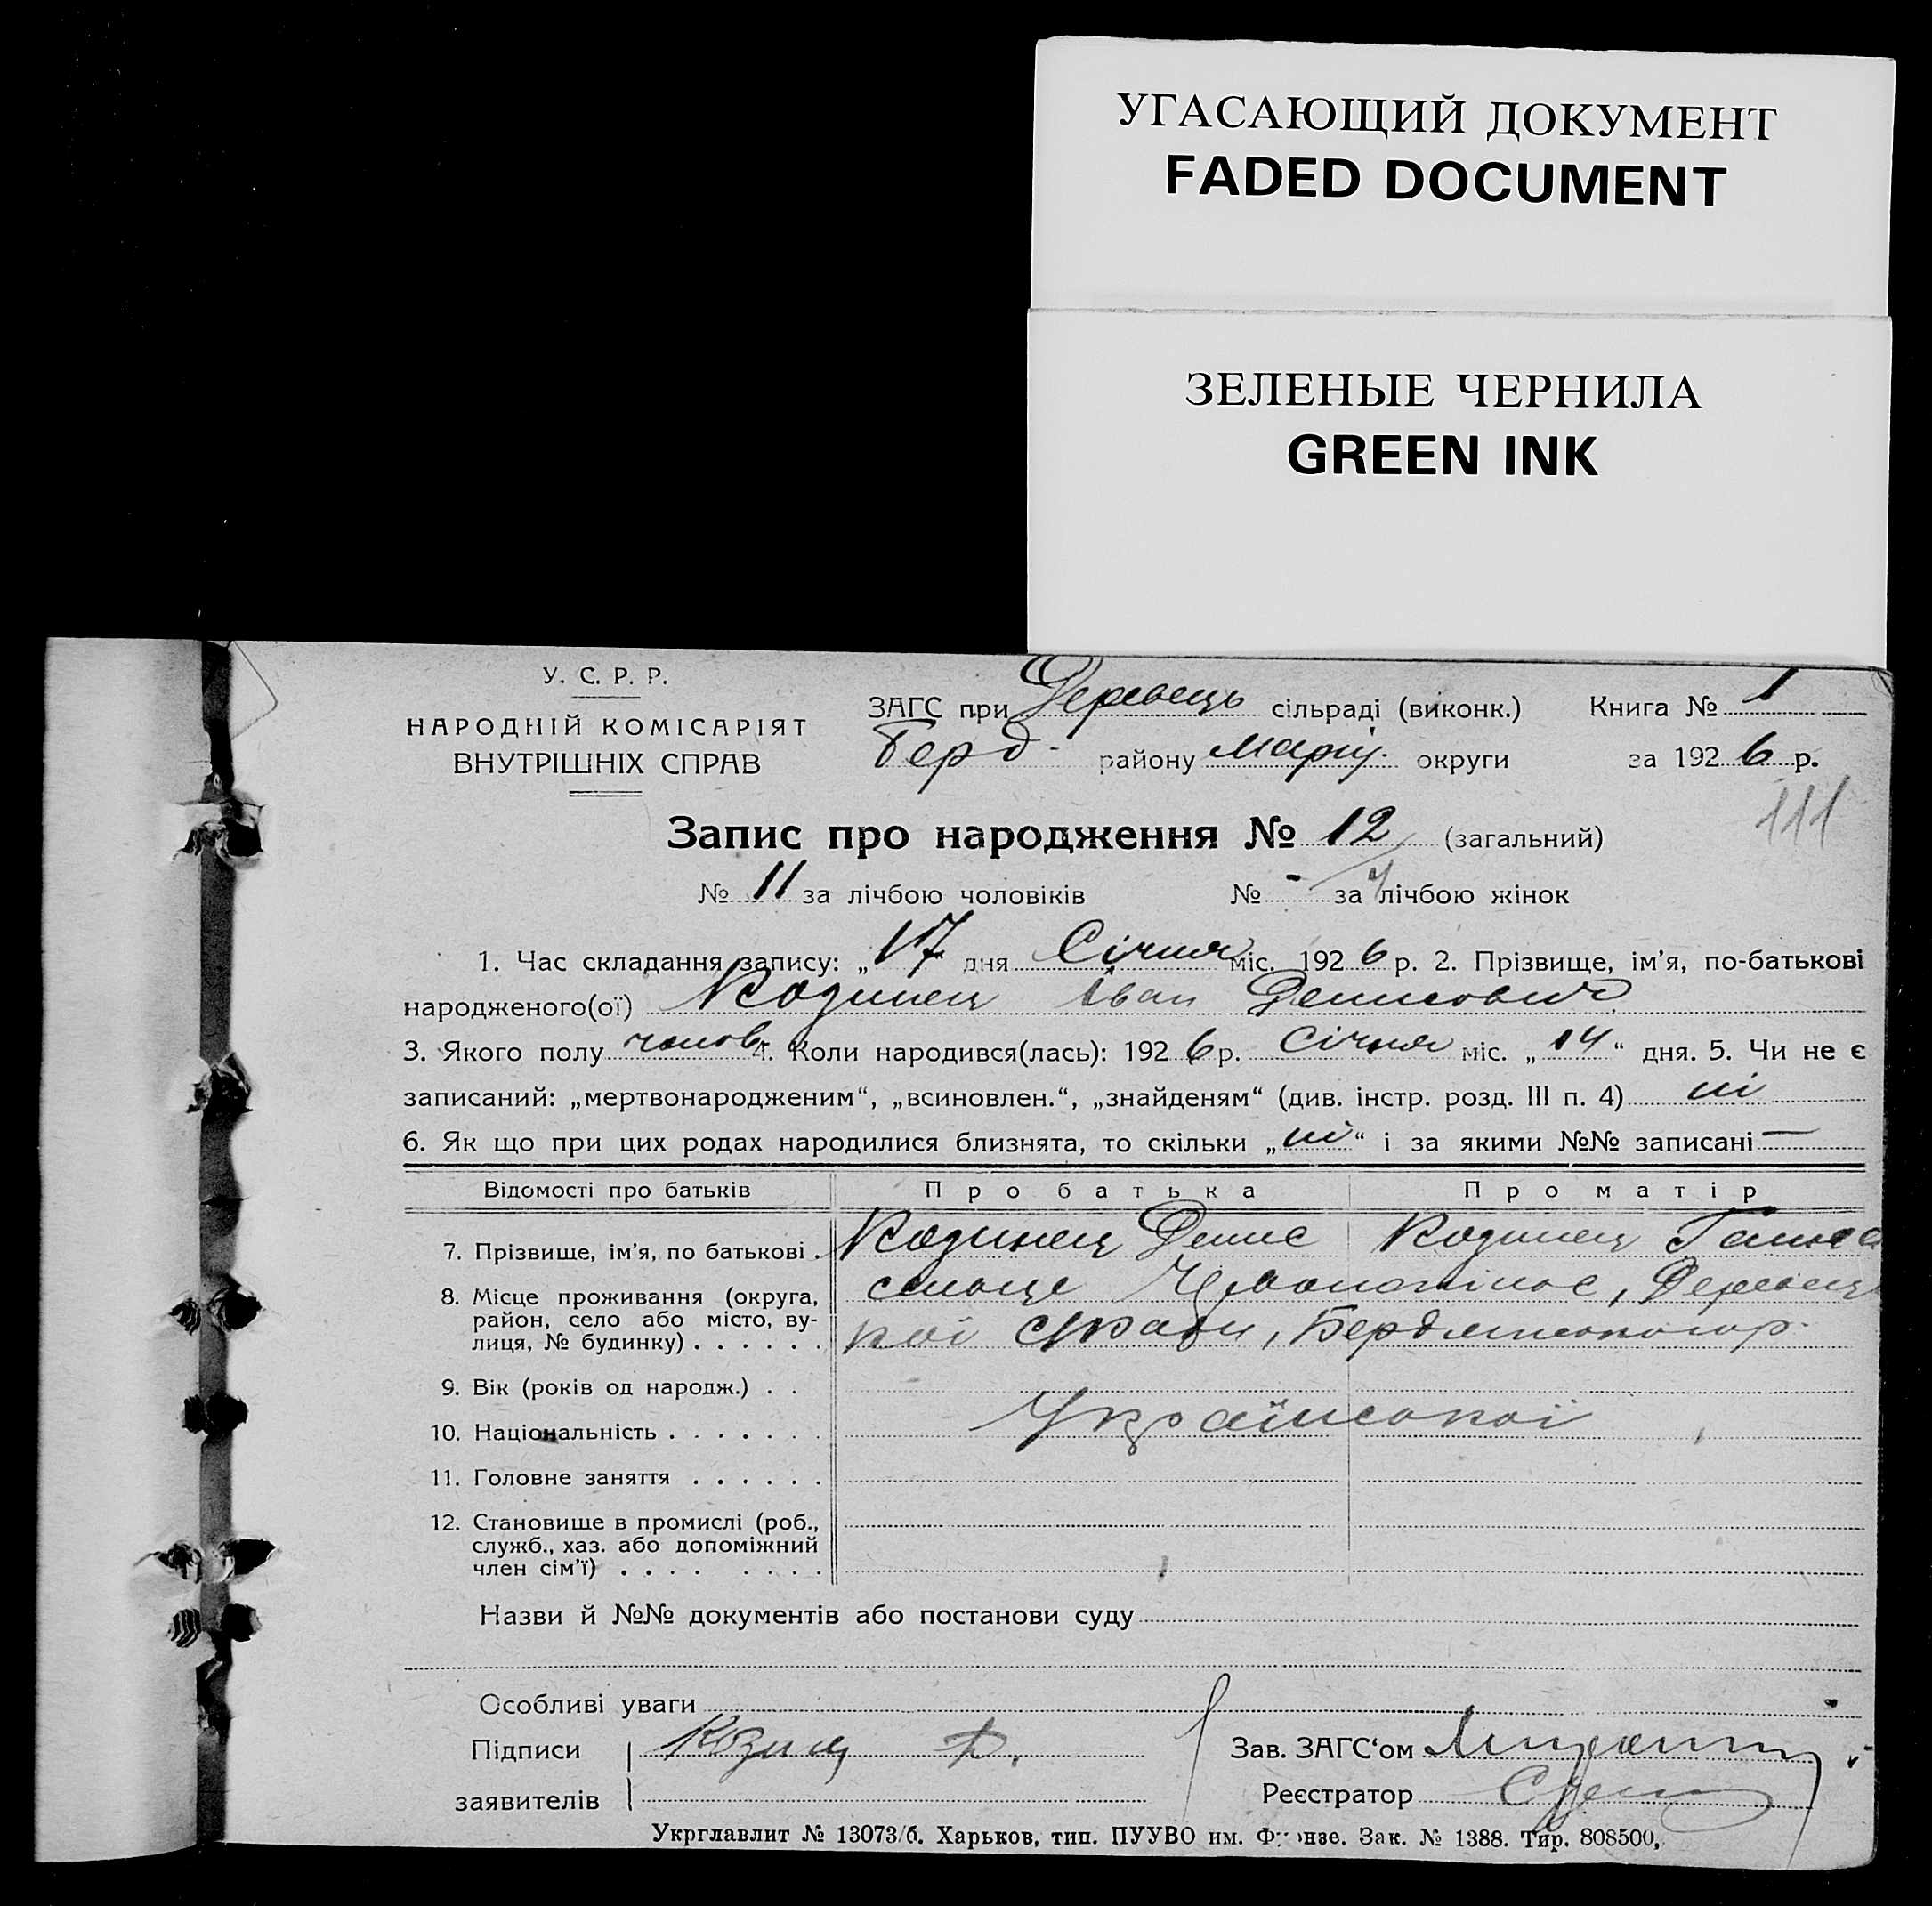 УГАСАЮЩИЙ ДОКУМЕНТ
FADED DOCUMENT
ЗЕЛЕНЫЕ ЧЕРНИЛА
GREEN INK
У. С. Р. Р.
НАРОДНІЙ КОМІСАРІЯТ
ВНУТРІШНІХ СПРАВ
ЗАГС при Деревець сільраді (виконк.) Книга № 1
Берд району Марiу. округи за 1926 р.
111
Запис про народження № 12 (загальний)
№ 11 за лічбою чоловіків № - за лічбою жінок
1. Час складання запису: „17 дня Січня міс. 1926 р. 2. Прізвище, ім’я, по-батькові
народженого(ої) Козинец Іван Денисович
3. Якого полу чолов 4. Коли народився(лась): 1926 р. Січня міс. „14“ дня. 5. Чи не є
записаний: „мертвонародженим“, „всиновлен.“, „знайденям“ (див. інстр. розд. III п. 4) ні
6. Як що при цих родах народилися близнята, то скільки „ні“ і за якими №№ записані —
Відомості про батьків Про батька Про матір
7. Прізвище, ім’я, по батькові . Козинец Денис Козинец Ганна
8. Місце проживання (округа, район, село або місто, вулиця, № будинку) . . . . . . Деревець
кої с/ради, Бердянського р.
9. Вік (років од народж.) . .
10. Національність . . . . . . . Української
11. Головне заняття . . . . . .
12. Становище в промислі (роб.,
служб., хаз. або допоміжний
член сім’ї) . . . . . . . .
Назви й №№ документів або постанови суду
Особливі уваги
Підписи Козинц Д. Зав. ЗАГС‘ом
заявителів Реєстратор
Укрглавлит № 13073/б. Харьков, тип. ПУУВО им. Фрунзе. Зак. № 1388. Тир. 808500,